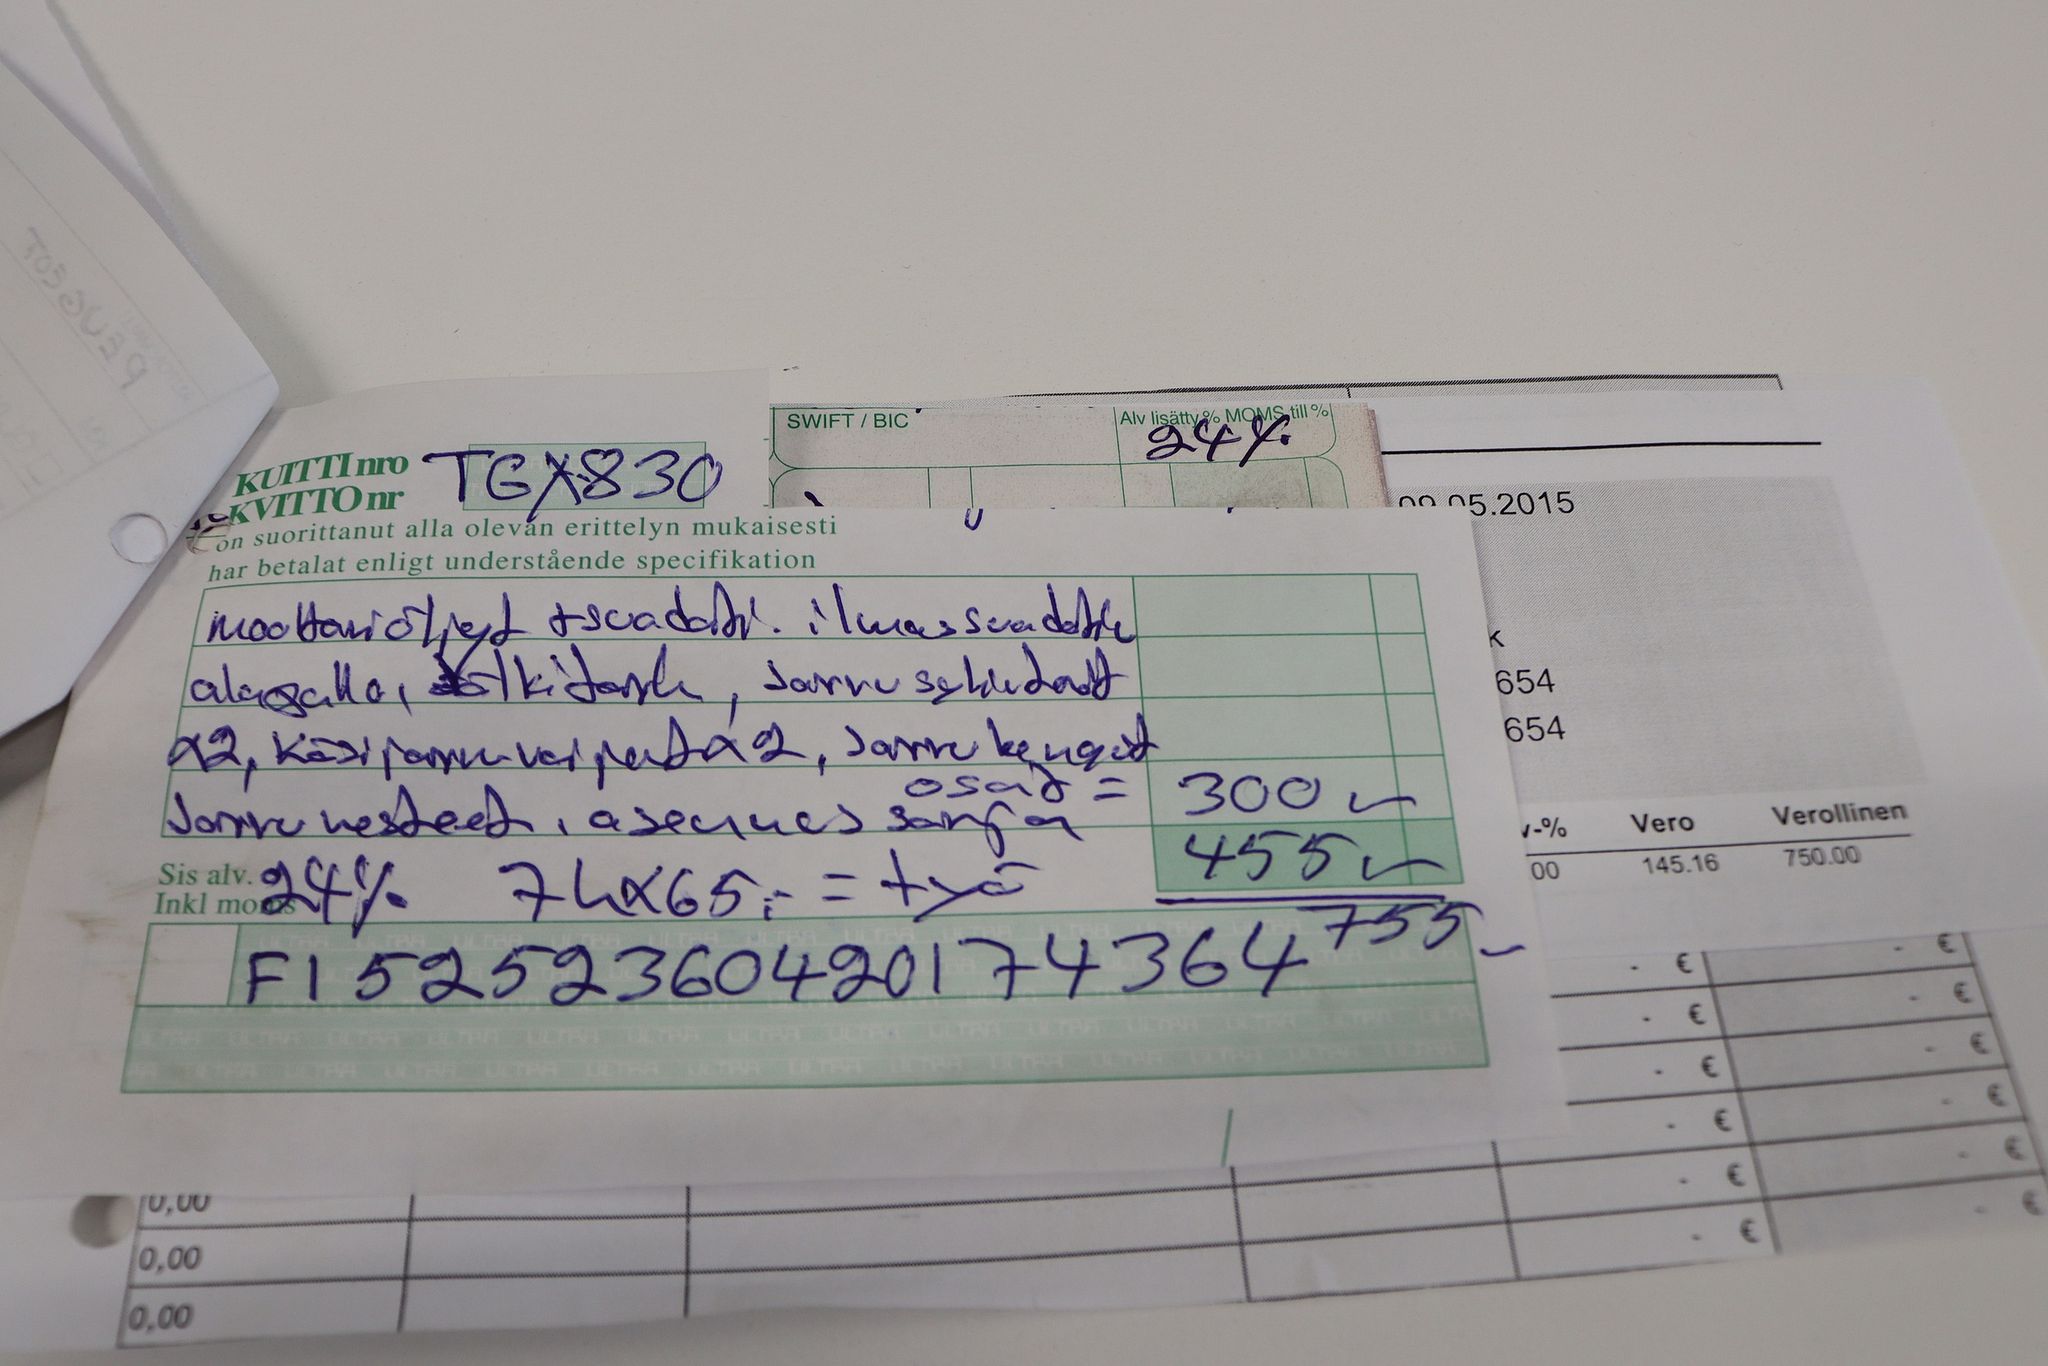 SWIFT / BIC
Alv lisätty % MOMS till %
24%
KUITTI nro
KVITTO nr
TGX830
on suorittanut alla olevan erittelyn mukaisesti
har betalat enligt understående specifikation
moottoriöljyt + suodatin. ilmassuodatin
alapallo, jarrusylinterit
x2, käsijarruvaijerit x2, jarrukengät
osat = 300
jarrunesteet, asennus
455
Sis alv.
Inkl moms
24% 7hx65,- = työ
755
FI5252360420174364
ULTRA ULTRA ULTRA ULTRA ULTRA
.05.2015
K
654
654
v-% Vero Verollinen
00 145.16 750.00
- € - €
- € - €
- € - €
- € - €
- € - €
- € - €
0,00
0,00
0,00